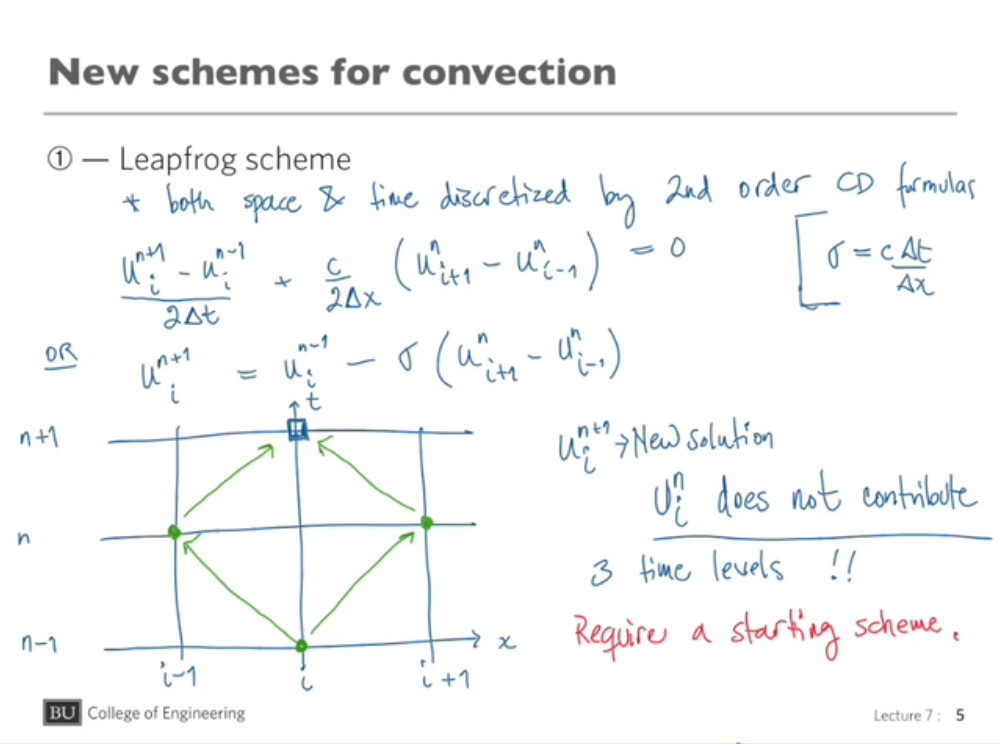 New schemes for convection
① — Leapfrog scheme
* both space & time discretized by 2nd order CD formulas
(uᵢⁿ⁺¹ - uᵢⁿ⁻¹) / 2Δt + c / 2Δx (uⁿᵢ₊₁ - uⁿᵢ₋₁) = 0 [ σ = cΔt / Δx
OR uᵢⁿ⁺¹ = uᵢⁿ⁻¹ - σ (uⁿᵢ₊₁ - uⁿᵢ₋₁)
t
n+1
uᵢⁿ⁺¹ → New solution
Uᵢⁿ does not contribute
n
3 time levels !!
Require a starting scheme.
n-1
x
i-1 i i+1
BU College of Engineering
Lecture 7 : 5